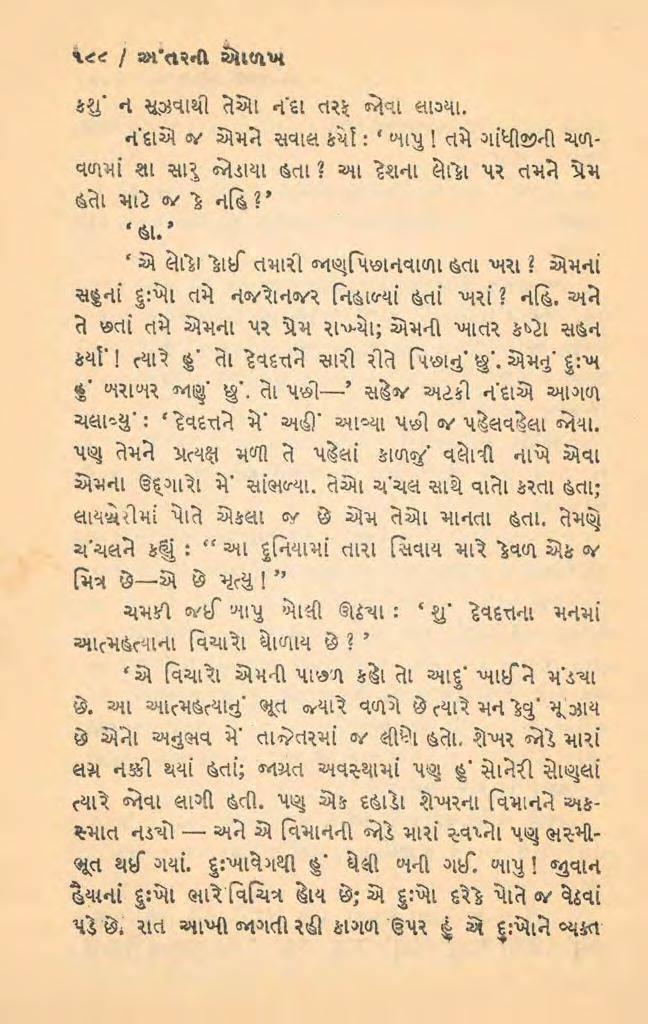 ૧૮૮ / અંતરની ઓળખ
કશું ન સૂઝવાથી તેઓ નંદા તરફ જોવા લાગ્યા.
નંદાએ જ એમને સવાલ કર્યો : ‘ બાપુ ! તમે ગાંધીજીની ચળ-
વળમાં શા સારુ જોડાયા હતા ? આ દેશના લોકો પર તમને પ્રેમ
હતો માટે જ કે નહિ ?’
‘ હા. ’
‘ એ લોકો કોઈ તમારી જાણપિછાનવાળા હતા ખરા ? એમનાં
સહુનાં દુઃખો તમે નજરોનજર નિહાળ્યાં હતાં ખરાં ? નહિ. અને
તે છતાં તમે એમના પર પ્રેમ રાખ્યો; એમની ખાતર કષ્ટો સહન
કર્યાં ! ત્યારે હું તો દેવદત્તને સારી રીતે પિછાનું છું. એમનું દુઃખ
હું બરાબર જાણું છું. તો પછી—’ સહેજ અટકી નંદાએ આગળ
ચલાવ્યું : ‘ દેવદત્તને મેં અહીં આવ્યા પછી જ પહેલવહેલા જોયા.
પણ તેમને પ્રત્યક્ષ મળી તે પહેલાં કાળજું વલોવી નાખે એવા
એમના ઉદ્ગારો મેં સાંભળ્યા. તેઓ ચંચલ સાથે વાતો કરતા હતા;
લાયબ્રેરીમાં પોતે એકલા જ છે એમ તેઓ માનતા હતા. તેમણે
ચંચલને કહ્યું : “ આ દુનિયામાં તારા સિવાય મારે કેવળ એક જ
મિત્ર છે—એ છે મૃત્યુ ! ”
ચમકી જઈ બાપુ બોલી ઊઠ્યા : ‘ શું દેવદત્તના મનમાં
આત્મહત્યાના વિચારો ઘોળાય છે ? ’
‘ એ વિચારો એમની પાછળ કહો તો આદું ખાઈને મંડ્યા
છે. આ આત્મહત્યાનું ભૂત જ્યારે વળગે છે ત્યારે મન કેવું મૂંઝાય
છે એનો અનુભવ મેં તાજેતરમાં જ લીધો હતો. શેખર જોડે મારાં
લગ્ન નક્કી થયાં હતાં; જાગ્રત અવસ્થામાં પણ હું સોનેરી સોણુલાં
ત્યારે જોવા લાગી હતી. પણ એક દહાડો શેખરના વિમાનને અક-
સ્માત નડ્યો — અને એ વિમાનની જોડે મારાં સ્વપ્નો પણ ભસ્મી-
ભૂત થઈ ગયાં. દુઃખાવેગથી હું ઘેલી બની ગઈ. બાપુ ! જુવાન
હૈયાનાં દુઃખો ભારે વિચિત્ર હોય છે; એ દુઃખો દરેકે પોતે જ વેઠવાં
પડે છે. રાત આખી જાગતી રહી કાગળ ઉપર હું એ દુઃખોને વ્યક્ત